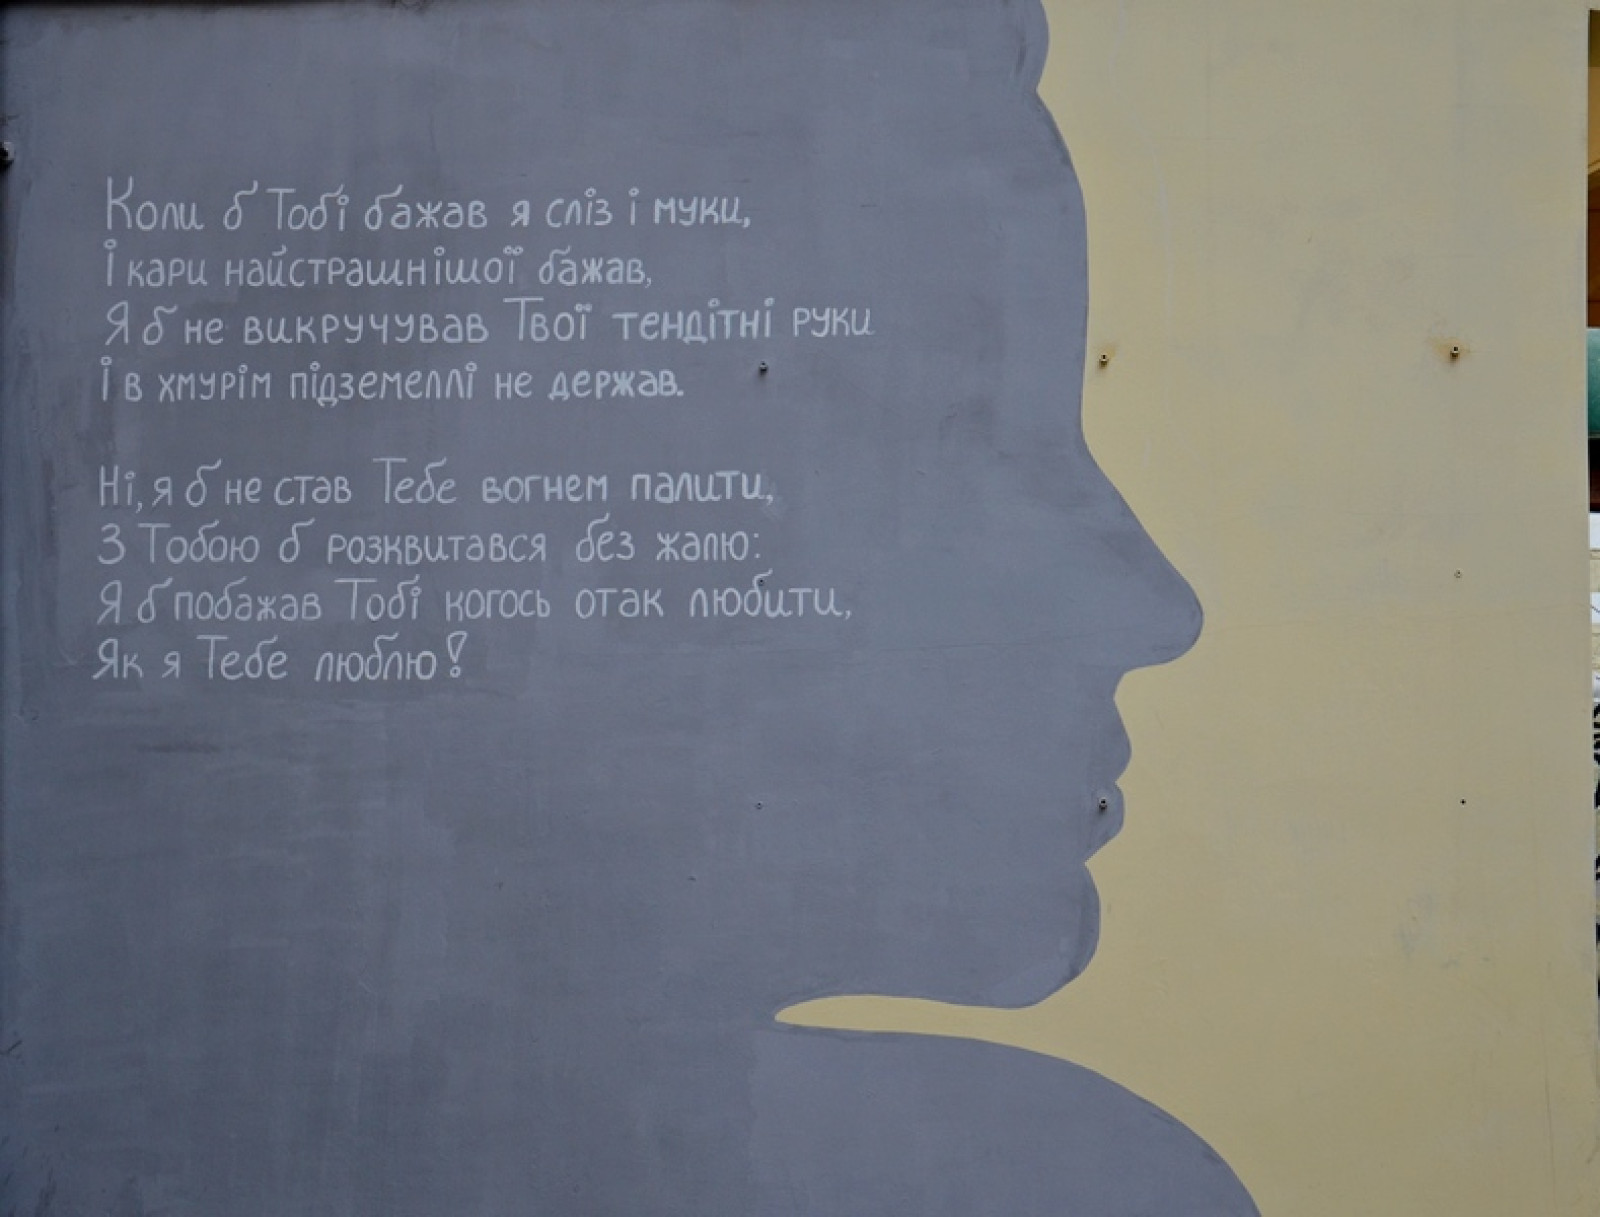 Коли б Тобі бажав я сліз і муки,
І кари найстрашнішої бажав,
Я б не викручував Твої тендітні руки
І в хмурім підземеллі не держав.
Ні, я б не став Тебе вогнем палити,
З Тобою б розквитався без жалю:
Я б побажав Тобі когось отак любити,
Як я Тебе люблю!